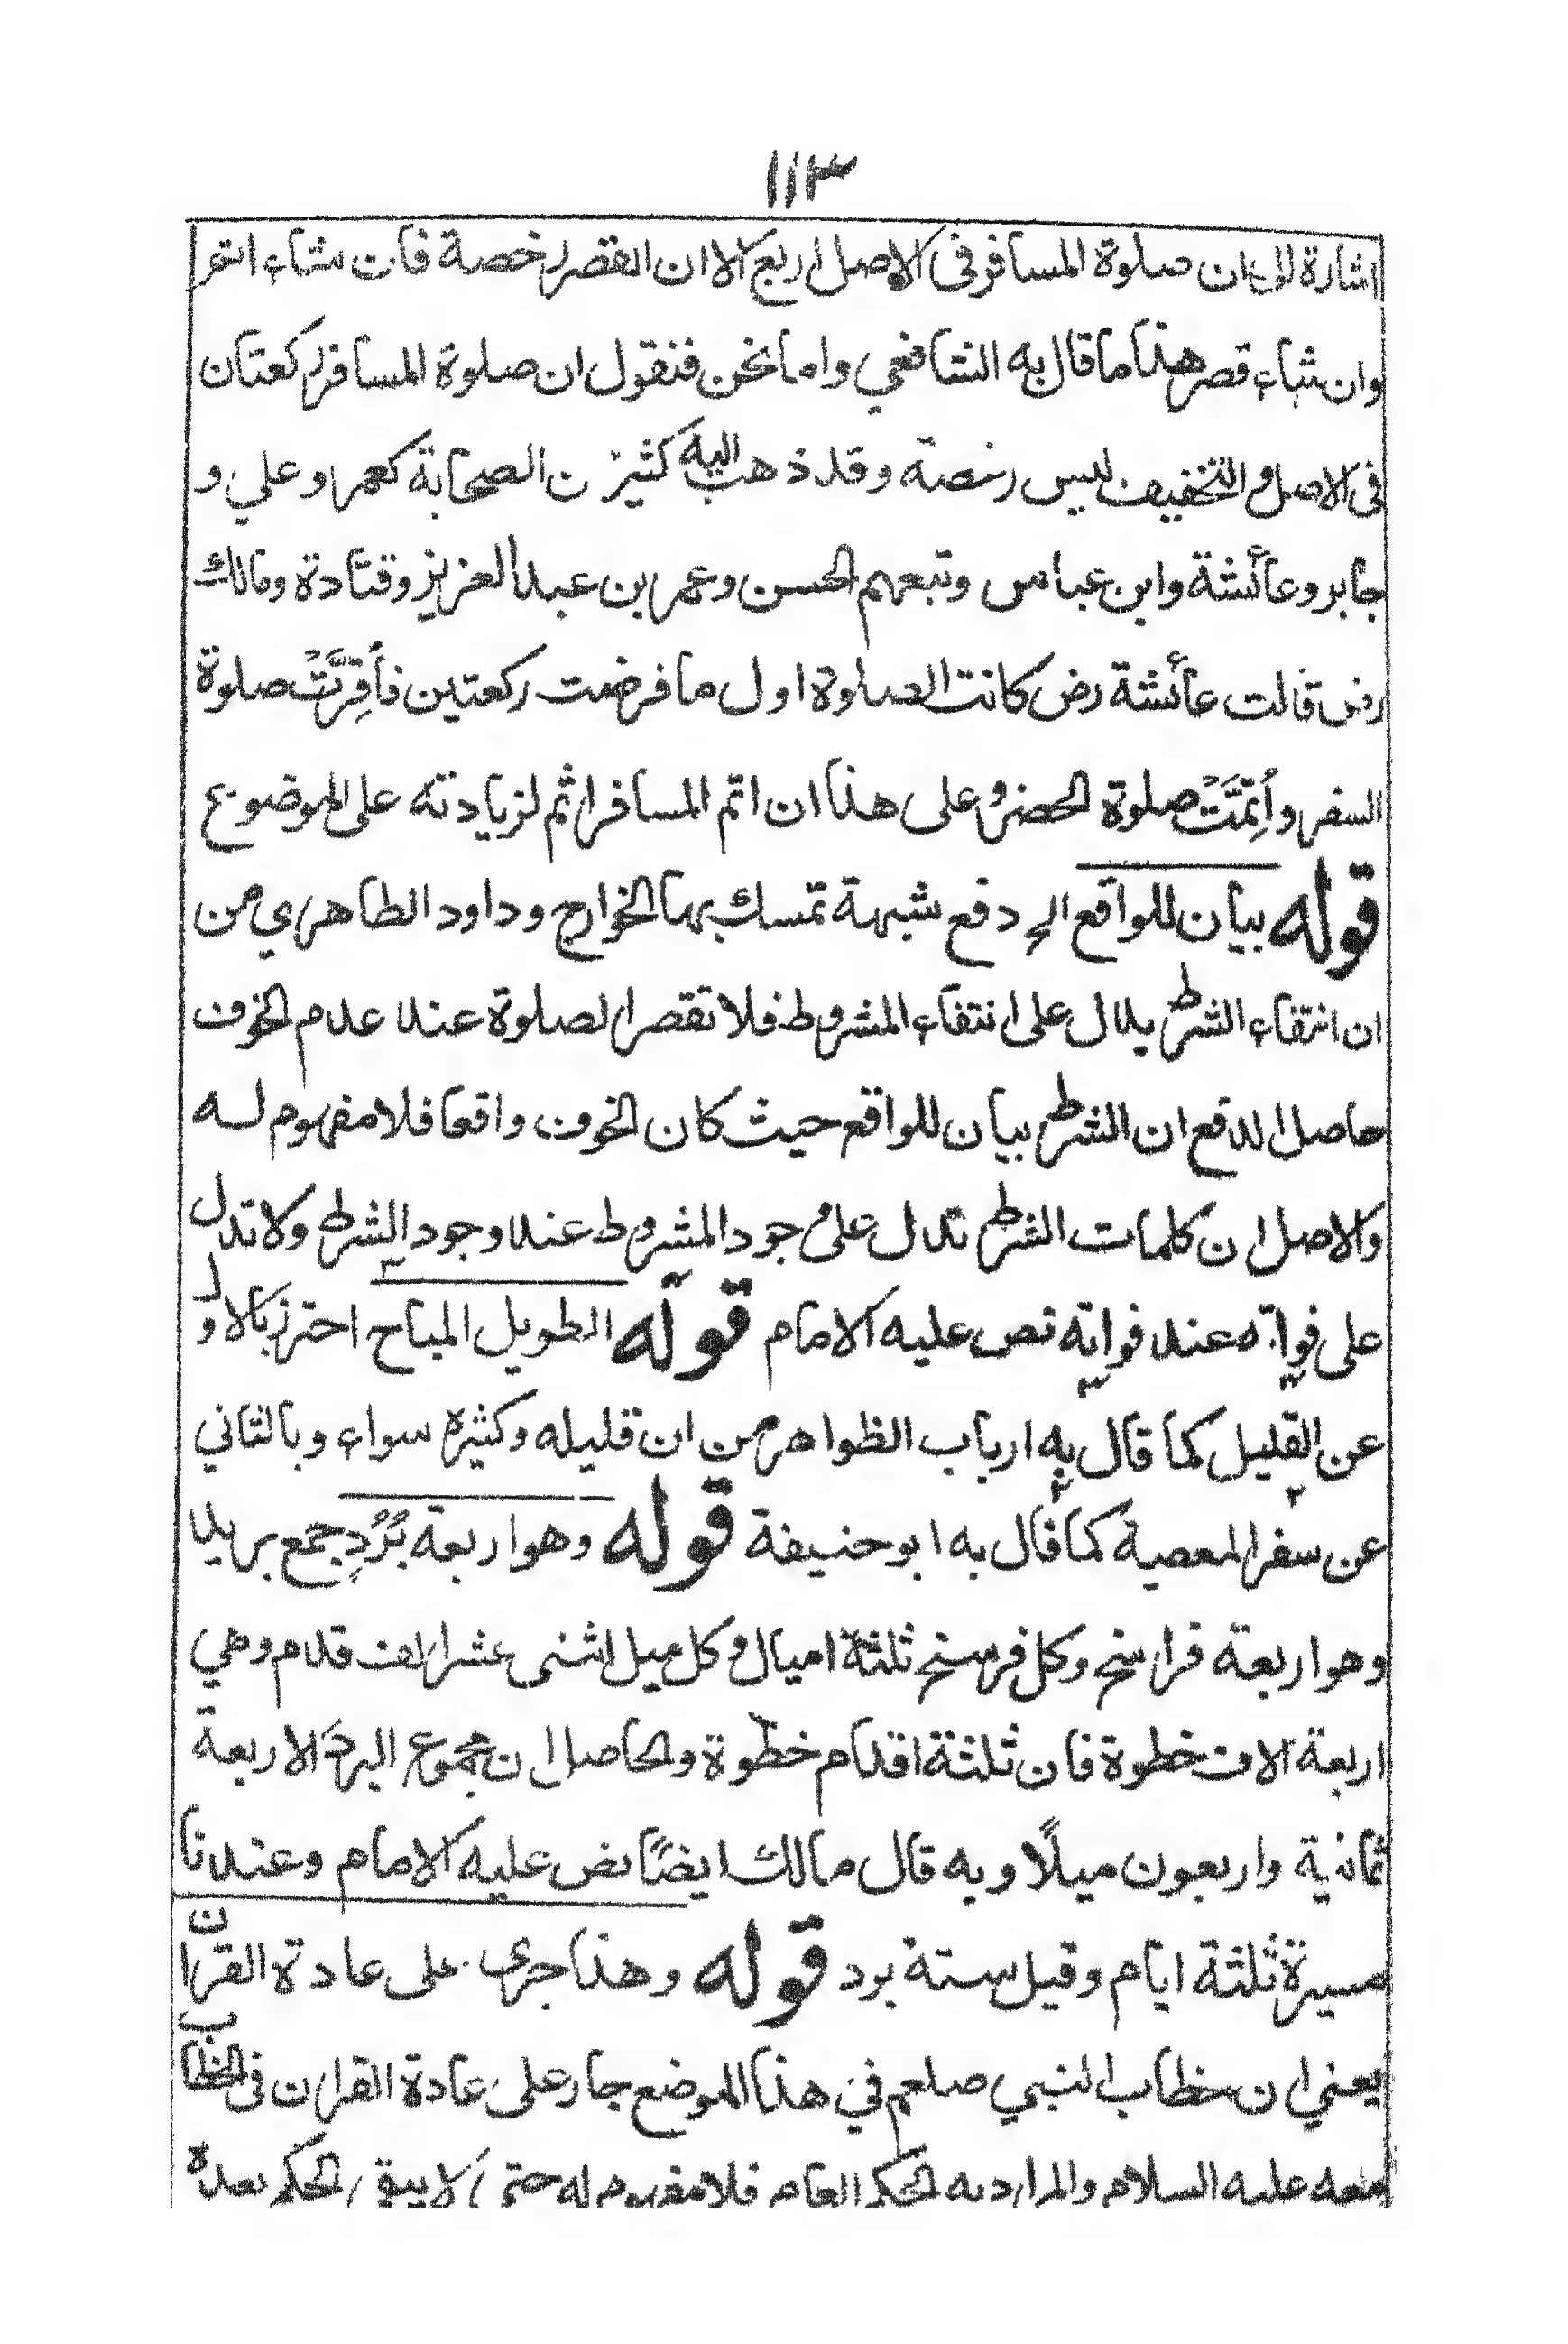 ١١٣
اشارة الى ان صلوة المسافر فى الاصل اربع الا ان القصر رخصة فان شاء اتم
وان شاء قصر هذا ما قال به الشافعي واما نحن فنقول ان صلوة المسافر ركعتان
فى الاصل والتخفيف ليس رخصة وقد ذهب اليه كثير ن الصحابة كعمر وعلي و
جابر وعائشة وابن عباس وتبعهم الحسن وعمر بن عبد العزيز وقتادة ومالك
رض قالت عائشة رض كانت الصلوة اول ما فرضت ركعتين فأقِرَّتْ صلوة
السفر وأُتِمَّتْ صلوة الحضر وعلى هذا ان اتم المسافر اثم لزيادته على الموضوع
قوله بيان للواقع الخ دفع شبهة تمسك بها الخوارج وداود الظاهري من
ان انتفاء الشرط يدل على انتفاء المشروط فلا تقصر الصلوة عند عدم الخوف
حاصل الدفع ان الشرط بيان للواقع حيث كان الخوف واقعا فلا مفهوم له
والاصل ان كلمات الشرط تدل على وجود المشروط عند وجود الشرط ولا تدل
على فواته عند فواته نص عليه الامام قوله الطويل المباح احترز بالاول
عن القليل كما قال به ارباب الظواهر من ان قليله وكثيره سواء وبالثاني
عن سفر المعصية كما قال به ابو حنيفة قوله وهو اربعة بُرُدٍ جمع بريد
وهو اربعة فراسخ وكل فرسخ ثلثة اميال وكل ميل اثنى عشر الف قدم وهي
اربعة الاف خطوة فان ثلثة اقدام خطوة والحاصل ان مجموع البرد الاربعة
ثمانية واربعون ميلًا وبه قال مالك ايضًا نص عليه الامام وعندنا
مسيرة ثلثة ايام وقيل ستة برد قوله وهذا جرى على عادة القران
يعني ان خطاب النبي صلعم في هذا الموضع جار على عادة القران فى الخطاب
معه عليه السلام والمراد به الحكم العام فلا مفهوم له حتى لا يبقى الحكم بعده